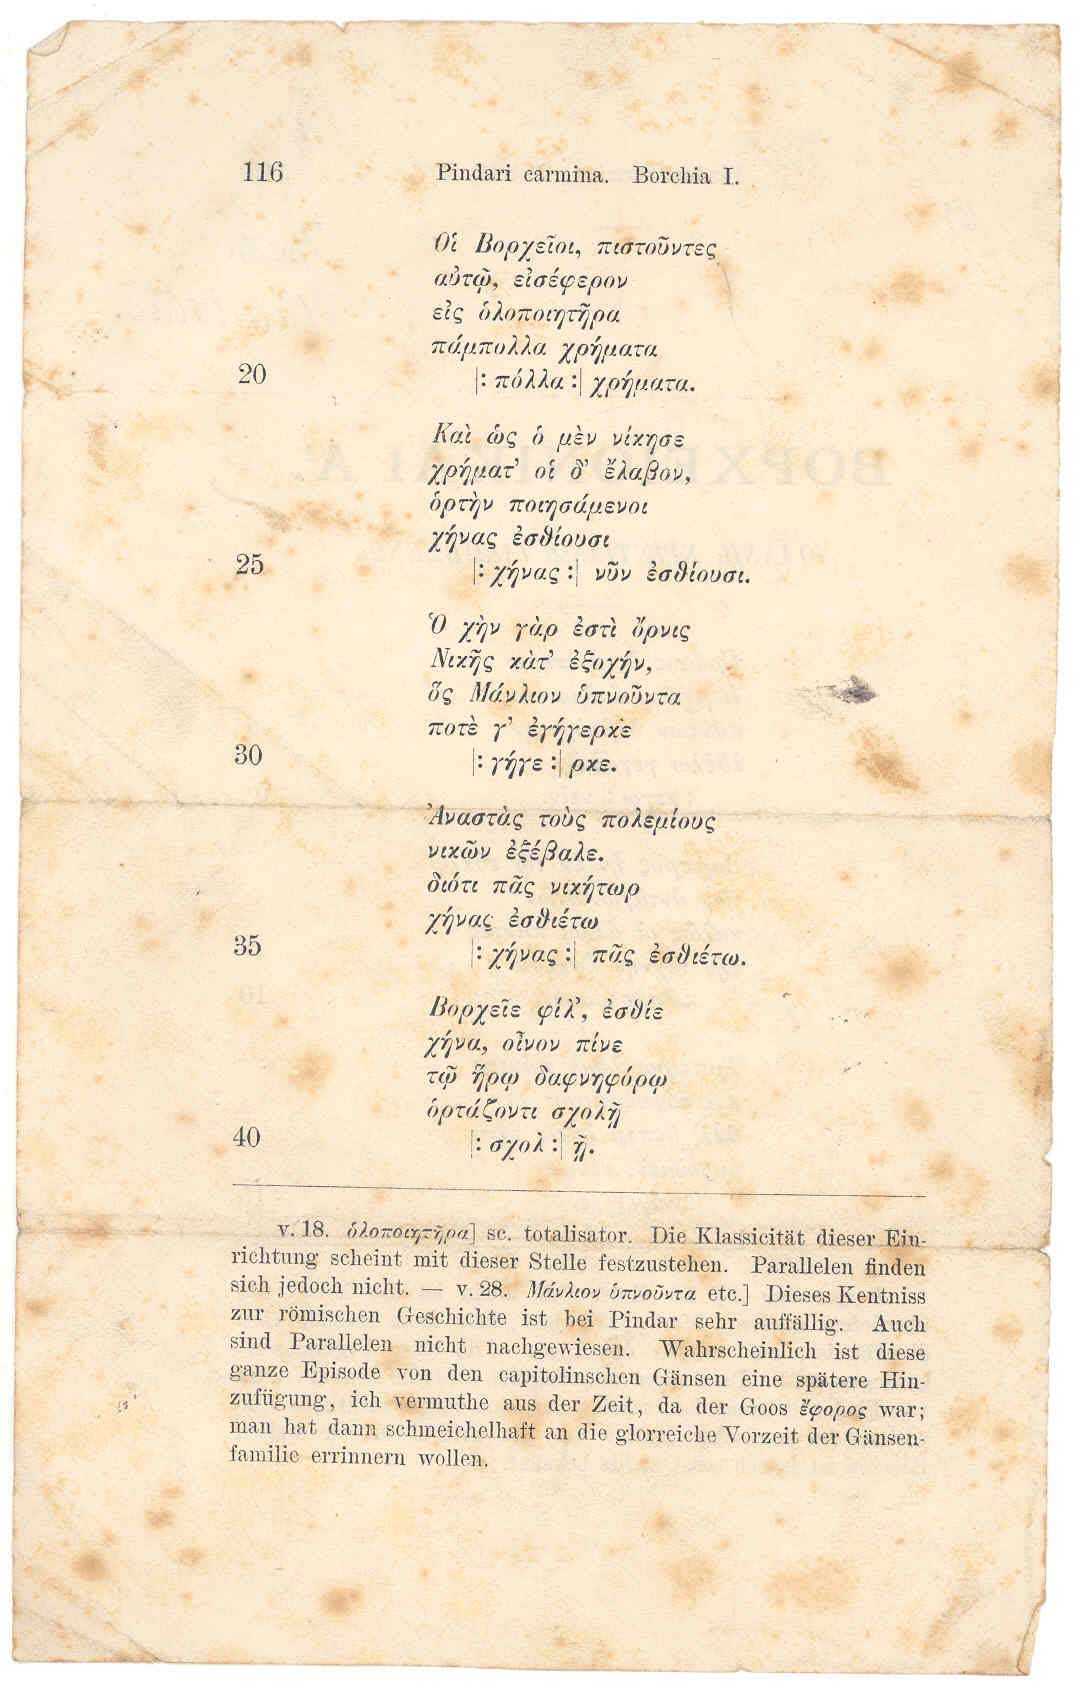 116 Pindari carmina. Borchia I.
Οἱ Βορχεῖοι, πιστοῦντες
αὐτῷ, εἰσέφερον
εἰς ὁλοποιητῆρα
πάμπολλα χρήματα
20 |: πόλλα :| χρήματα.
Καὶ ὡς ὁ μὲν νίκησε
χρήματ’ οἱ δ’ ἔλαβον,
ὁρτὴν ποιησάμενοι
χήνας ἐσθίουσι
25 |: χήνας :| νῦν ἐσθίουσι.
Ὁ χὴν γὰρ ἐστὶ ὄρνις
Νικῆς κὰτ’ ἐξοχήν,
ὅς Μάνλιον ὑπνοῦντα
ποτὲ γ’ ἐγήγερκε
30 |: γήγε :| ρκε.
Ἀναστὰς τοὺς πολεμίους
νικῶν ἐξέβαλε.
διότι πᾶς νικήτωρ
χήνας ἐσθιέτω
35 |: χήνας :| πᾶς ἐσθιέτω.
Βορχεῖε φίλ’, ἐσθίε
χήνα, οἶνον πίνε
τῷ ἥρῳ δαφνηφόρῳ
ὁρτάζοντι σχολῇ
40 |: σχολ :| ῇ.
v. 18. ὁλοποιητῆρα] sc. totalisator. Die Klassicität dieser Ein-
richtung scheint mit dieser Stelle festzustehen. Parallelen finden
sich jedoch nicht. — v. 28. Μάνλιον ὑπνοῦντα etc.] Dieses Kentniss
zur römischen Geschichte ist bei Pindar sehr auffällig. Auch
sind Parallelen nicht nachgewiesen. Wahrscheinlich ist diese
ganze Episode von den capitolinschen Gänsen eine spätere Hin-
zufügung, ich vermuthe aus der Zeit, da der Goos ἔφορος war;
man hat dann schmeichelhaft an die glorreiche Vorzeit der Gänsen-
familie errinnern wollen.